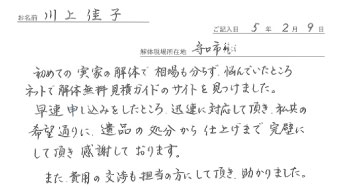 お名前 川上佳子
ご記入日 5年2月9日
解体現場所在地 守口市
初めての実家の解体で相場も分らず、悩んでいたところ
ネットで解体無料見積ガイドのサイトを見つけました。
早速申し込みをしたところ、迅速に対応して頂き、私共の
希望通りに、遺品の処分から仕上げまで完璧に
して頂き感謝しております。
また、費用の交渉も担当の方にして頂き、助かりました。